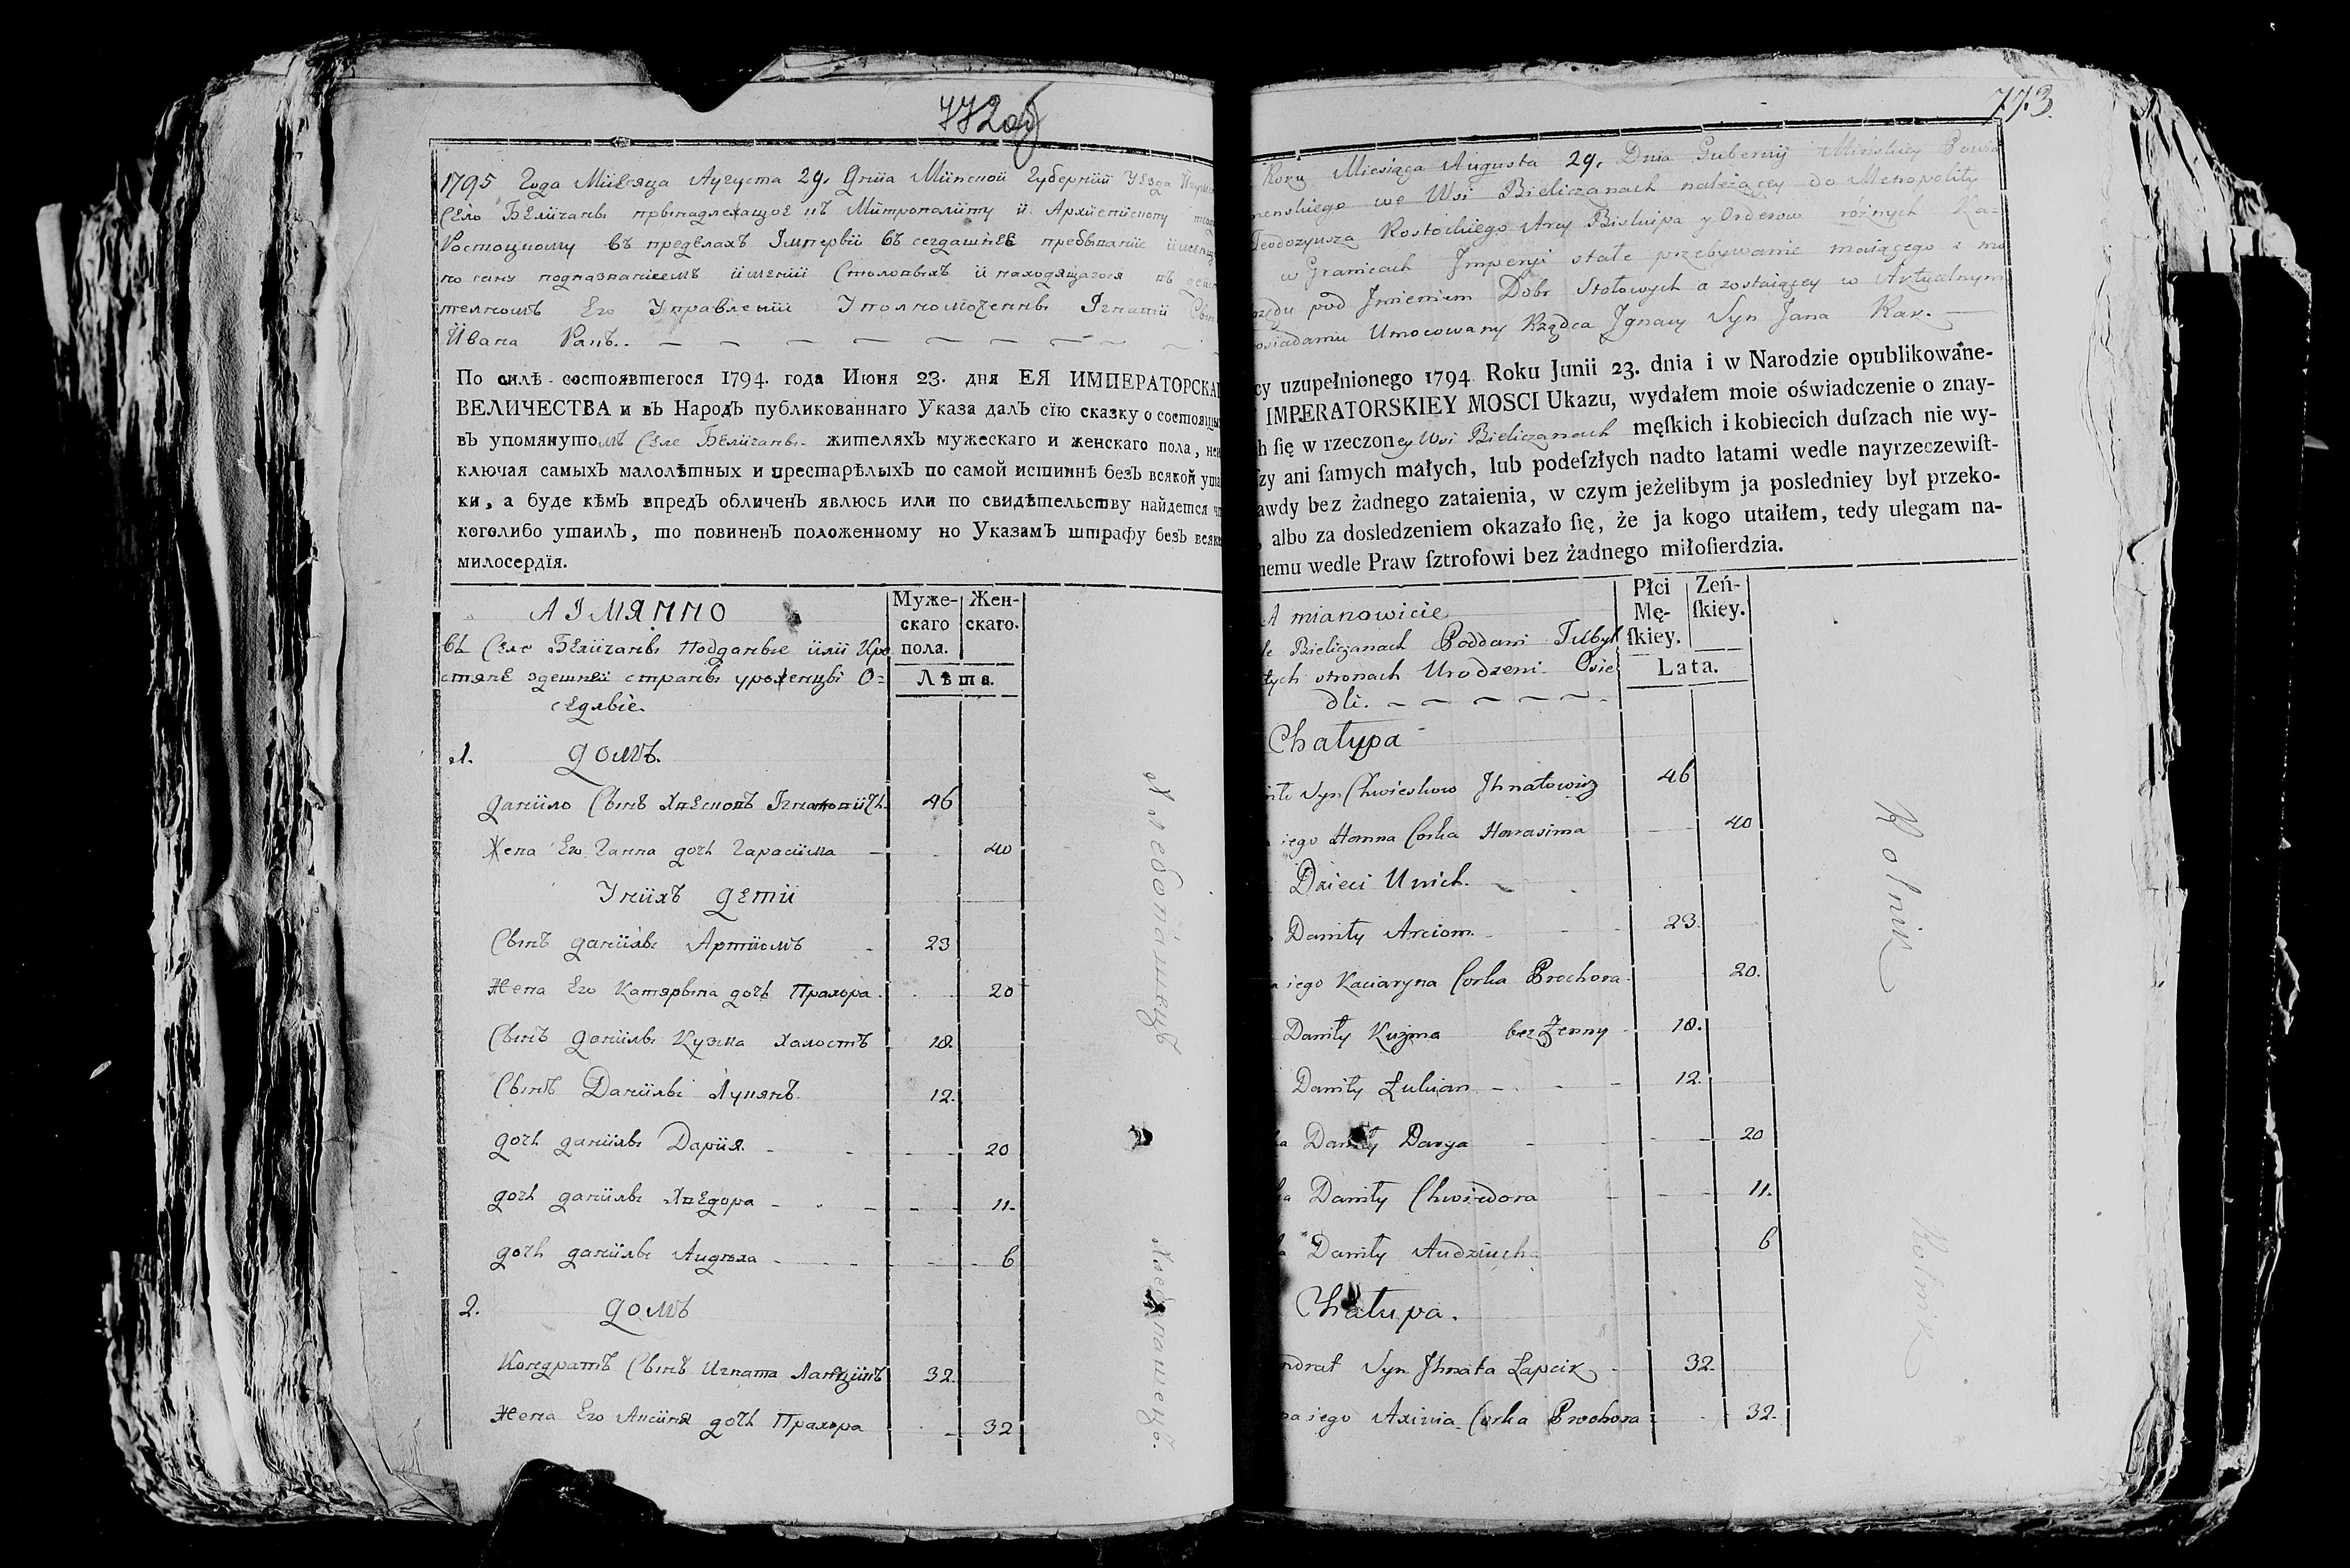 772об
1795 Года Мïисяца Аугуста 29. Дниа Мïинской Губернïи Уѣзда
Село Бѣлïичаны принадлежащое къ Мïитрополïиту ïи Архïиепïископу
Ростоцкому въ предѣлахъ Імперïи въ сегдашнее пребыванïе
по сану подназванïиемъ ïименïи Столовыхъ ïи находящагося въ
телномъ Его Управленïи Уполномоченны Iгнатïи Сынъ
Ивана Ракъ.
По силѣ состоявшегося 1794. года Июня 23. дня ЕЯ ИМПЕРАТОРСКАГО
ВЕЛИЧЕСТВА и въ Народъ публикованнаго Указа далъ сїю сказку о состоящих
въ упомянутомъ Селе Бѣлïичаны жителяхъ мужескаго и женскаго пола, неис
ключая самыхъ малолѣтных и престарѣлыхъ по самой истиннѣ безъ всякой утай
ки, а буде кѣмъ впредь обличенъ явлюсь или по свидѣтельству найдется что
коголибо утаилъ, то повиненъ положенному по Указамъ штрафу безъ всякаго
милосердїя.
АIМЯННО
Муже-скаго пола.
Жен-скаго.
въ Селе Бѣлïичаны Подданые ïилïи Кре
стяне здешнеïи страны уроженцы О=
седлые.
Лѣта.
1. Домъ.
Данïило Сынъ Хвесковъ Iгнатовïичъ 46
Жена Его Ганна дочь Гарасïима 40
Унïихъ Детïи
Сынъ Данïилы Артïиомъ 23
Жена Его Катярына дочь Прахора 20
Сынъ Данïилы Кузма Халостъ 18.
Сынъ Данïилы Лукянъ 12.
дочь Данïилы Дарïия 20
дочь Данïилы Хведора 11.
дочь Данïилы Аидзюха 6
2. Домъ
Кондратъ Сынъ Игната Лапцïикъ 32.
Жена Его Аксïиня дочь Прахора 32
Хлебопашецъ
Хлебопашецъ.
773.
Roku Miesiąca Augusta 29. Dnia Gubernij Minskiey Powia
menskiego we Wsi Bieliczanach należącey do Metropolity
Teodozyusza Rostockiego Arcy Biskupa y Orderow różnych Ka=
w Granicach Imperyi stałe przebywanie maiącego z mo
rzędu pod Imieniem Dobr Stołowych a zostaiącey w Aktualnym
osiadaniu Umocowany Rządca Ignacy Syn Jana Rak.
cy uzupełnionego 1794 Roku Junii 23. dnia i w Narodzie opublikowane-
IMPERATORSKIEY MOSCI Ukazu, wydałem moie oświadczenie o znay-
h się w rzeczoney Wsi Bieliczanach męſkich i kobiecich duſzach nie wy-
zy ani ſamych małych, lub podeſzłych nadto latami wedle nayrzeczewiſt-
awdy bez żadnego zataienia, w czym jeżelibym ja posledniey był przeko-
albo za dosledzeniem okazało ſię, że ja kogo utaiłem, tedy ulegam na-
nemu wedle Praw ſztrofowi bez żadnego miłoſierdzia.
A mianowicie
Płci Mę-ſkiey.
Zeń-ſkiey.
Bieliczanach Poddani
tych stronach Urodzeni Osie
dli.
Lata.
Chałupa
Syn Chwieskow Ihnatowicz 46
iego Hanna Corka Harasima 40
Dzieci Unich.
Daniły Arciom. 23.
iego Kaciaryna Corka Prochora 20.
Daniły Kuzma bez Żenny 18.
Daniły Łukian 12.
Daniły Darya 20
Daniły Chwiedora 11.
Daniły Audziucha 6
Chałupa.
ndrat Syn Ihnata Łapcik 32.
iego Axinia Corka Prochora 32.
Rolnik
Rolnik